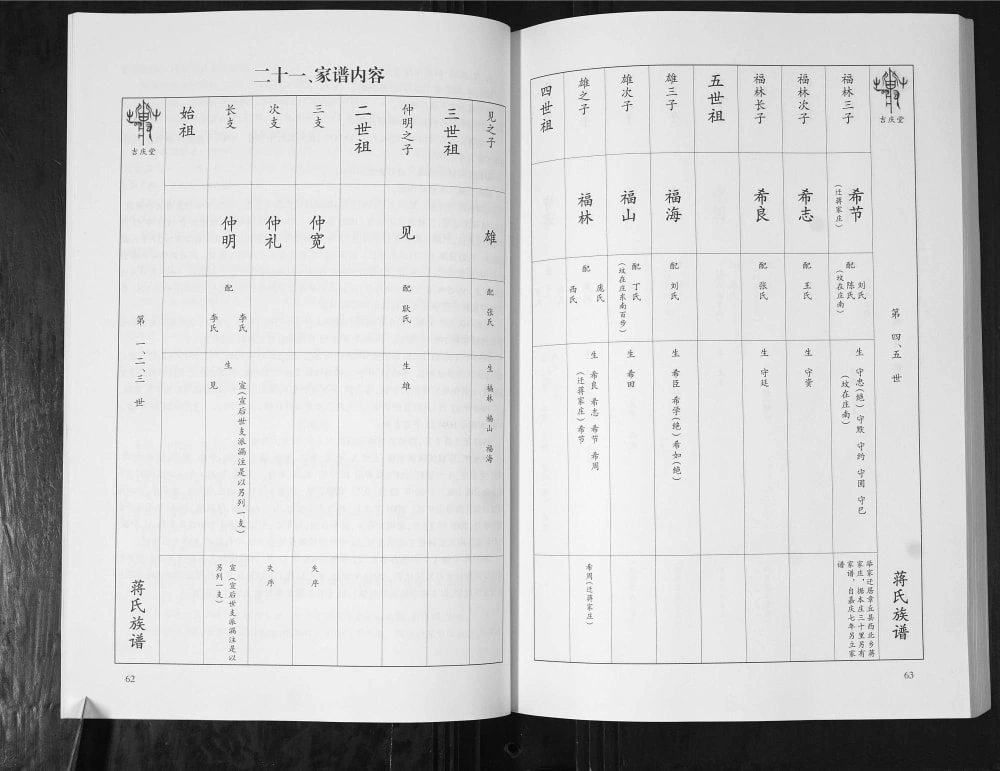 二十一、家谱内容
吉庆堂
第一、二、三世
蒋氏族谱
始祖
长支
仲明
配
李氏
李氏
生
宣(宣后世支派漏注是以另列一支)
见
宣(宣后世支派漏注是以
另列一支)
次支
仲礼
失序
三支
仲宽
失序
二世祖
仲明之子
见
配 耿氏
生 雄
三世祖
见之子
雄
配 张氏
生 福林 福山 福海
62
四世祖
雄之子
福林
配
庞氏
西氏
生 希良 希志 希节 希周
(迁蒋家庄)希节
希周(迁蒋家庄)
雄次子
福山
配 丁氏
(坟在庄东南百步)
生 希田
雄三子
福海
配 刘氏
生 希臣 希学(绝)希如(绝)
五世祖
福林长子
希良
配 张氏
生 守廷
福林次子
希志
配 王氏
生 守资
福林三子
希节
(迁蒋家庄)
配
刘氏
陈氏
(坟在庄南)
生 守忠(绝) 守默 守约 守国 守已
(坟在庄南)
举家迁居章丘县西北乡蒋
家庄,抛本庄三十里另有
家谱,自嘉庆七年另立家
谱
吉庆堂
第四、五世
蒋氏族谱
63